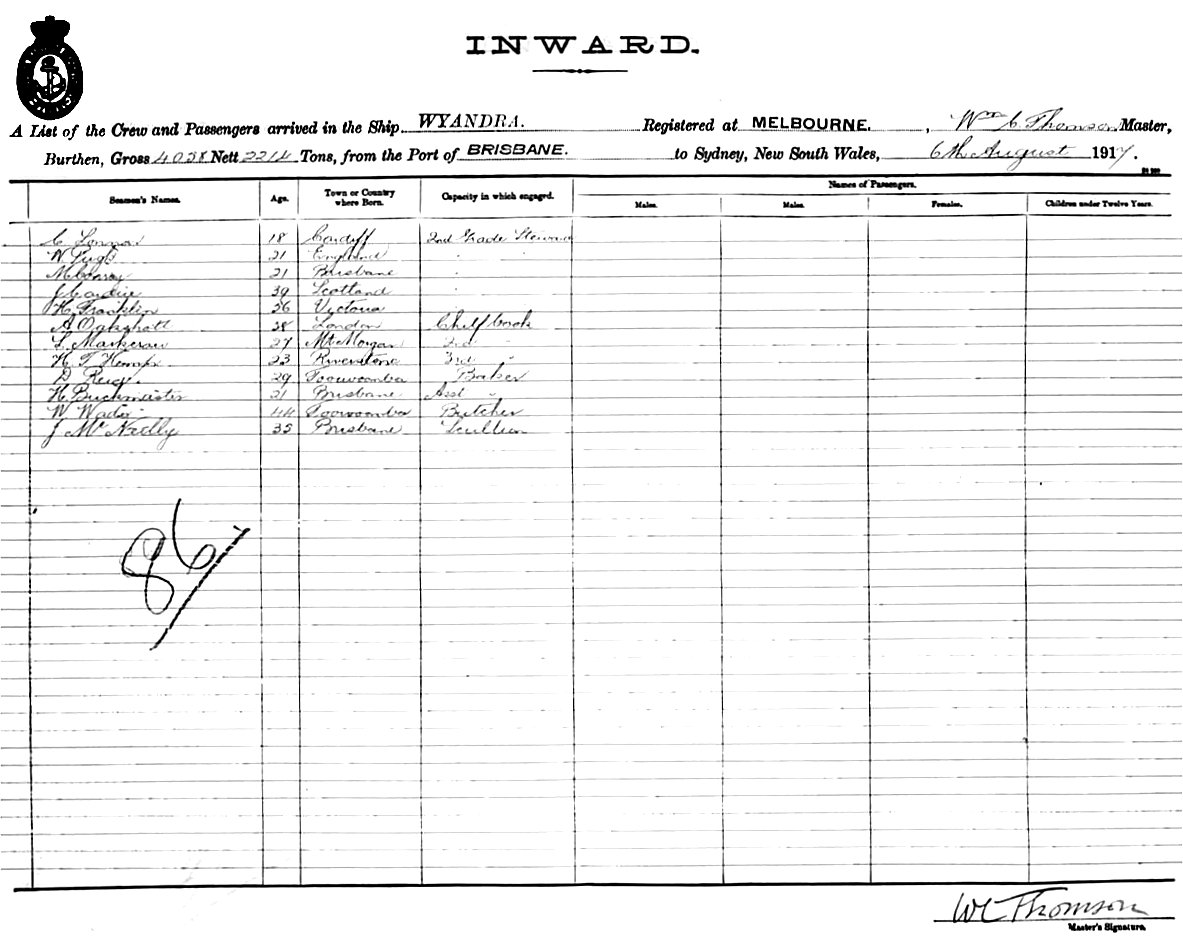 INWARD.
A List of the Crew and Passengers arrived in the Ship WYANDRA. Registered at MELBOURNE. , Wm C Thomson Master,
Burthen, Gross 4058 Nett 2214 Tons, from the Port of BRISBANE. to Sydney, New South Wales, 6th August 1917.
Seamen's Names. Age. Town or Country where Born. Capacity in which engaged. Names of Passengers.
Males. Males. Females. Children under Twelve Years.
C 18 Cardiff 2nd Grade Steward
W 21 England " "
M 21 Brisbane " "
J 39 Scotland " "
H. Franklin 36 Victoria " "
A Oakshatt 38 London Chief Cook
L. 27 Mt Morgan 2nd "
H. T. Kemp 23 Riverstone 3rd "
D 29 Toowoomba Baker
H. Buckmaster 21 Brisbane Asst "
W 44 Toowoomba Butcher
J McNeilly 35 Brisbane Scullion
86
WC Thomson
Master's Signature.